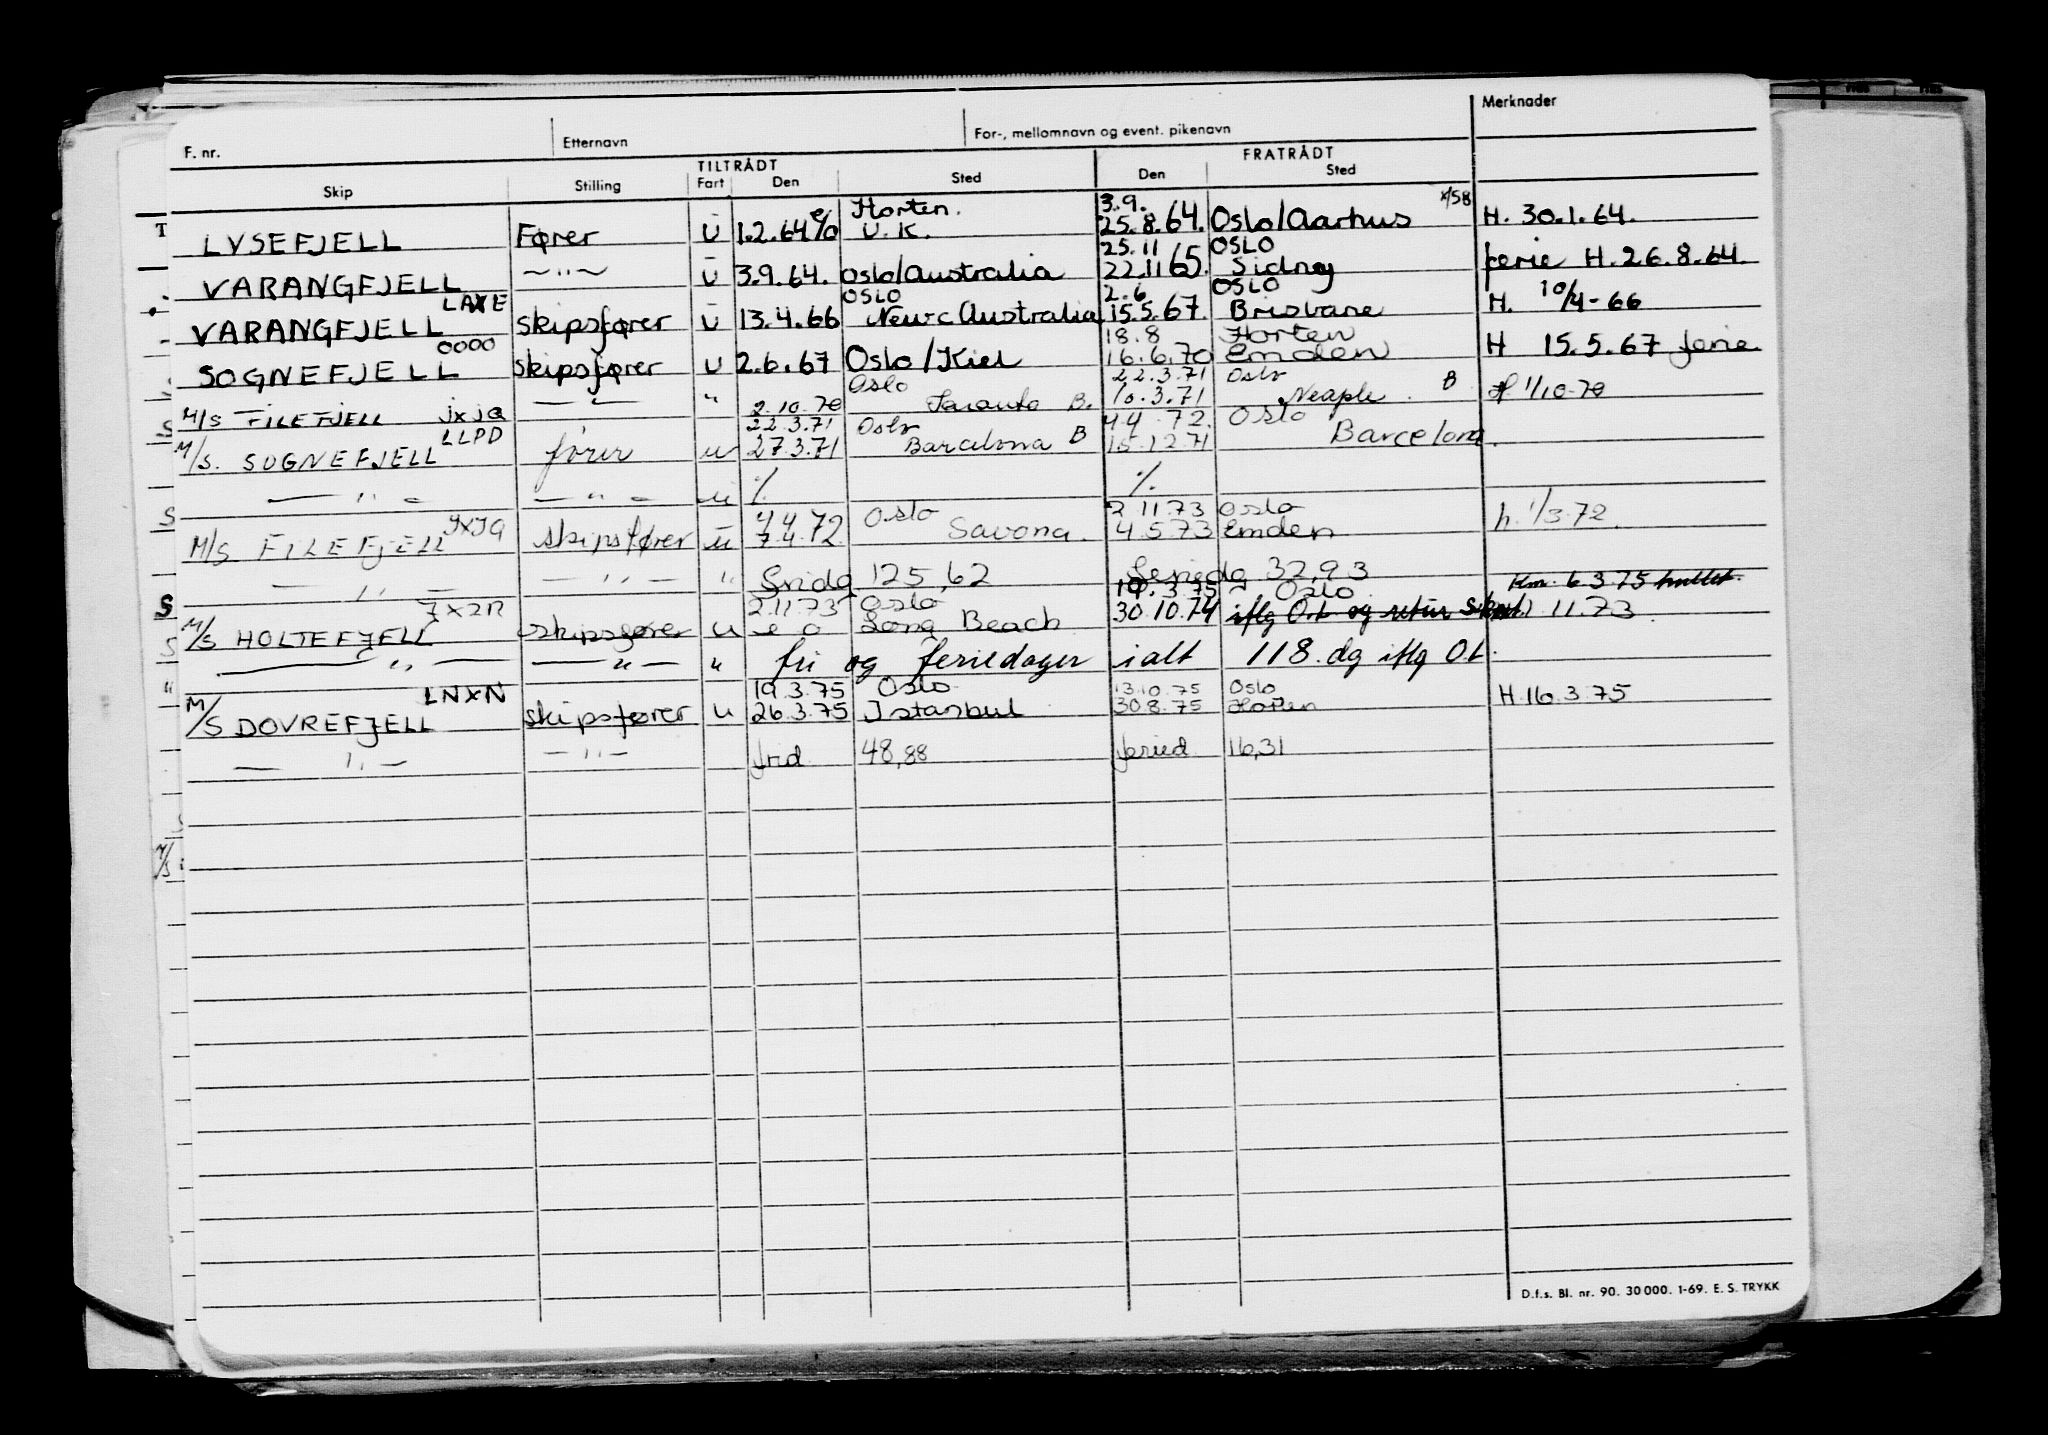 F. nr. Etternavn For-, mellomnavn og event. pikenavn Merknader
TILTRÅDT FRATRÅDT
Skip Stilling Fart Den Sted Den Sted
Horten. 3.9. x/58
LYSEFJELL Fører U 1.2.64 e/o U.K. 25.8.64. Oslo/Aarhus H. 30.1.64.
25.11 OSLO
VARANGFJELL — " — U 3.9.64. Oslo/Australia 22.11.65. Sidney ferie H. 26.8.64.
LAXE OSLO 2.6 OSLO
VARANGFJELL skipsfører U 13.4.66 Newc Australia 15.5.67. Brisbane H. 10/4-66
OOOO 18.8 Horten
SOGNEFJELL skipsfører U 2.6.67 Oslo/Kiel 16.6.70 Emden H 15.5.67 ferie
Oslo 22.3.71 Oslo
M/S FILEFJELL JXJQ — " — " 2.10.70 Taranto B. 10.3.71 Neaple B H 1/10-70
LLPD 22.3.71 Oslo 4.4.72. Oslo
M/S. SOGNEFJELL fører u 27.3.71 Barcelona B 15.12.71 Barcelona.
— " — — " — u % %
JXJQ 4.4.72 Oslo 2.11.73 Oslo
M/S FILEFJELL skipsfører u 7.4.72. Savona. 4.5.73 Emden h. 1/3.72.
— " — — " — " fridg 125,62 feriedg 32,93
JXZR 2.11.73 Oslo 19.3.75 Oslo Km. 6.3.75 hullet.
M/S HOLTEFJELL skipsfører u e o Long Beach 30.10.74 iflg O.L og retur 11.73.
— " — — " — " fri og feriedager ialt 118 dg iflg O.L.
LNXN 19.3.75 Oslo 13.10.75 Oslo
M/S DOVREFJELL skipsfører u 26.3.75 Istanbul 30.8.75 Horten H. 16.3.75
— " — — " — frid. 48,88 feried 16,31
D.f.s. Bl. nr. 90. 30 000. 1-69. E. S. TRYKK